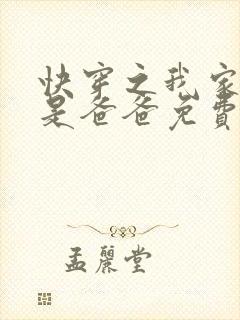 快穿之我家
是爸爸免費
孟麗堂